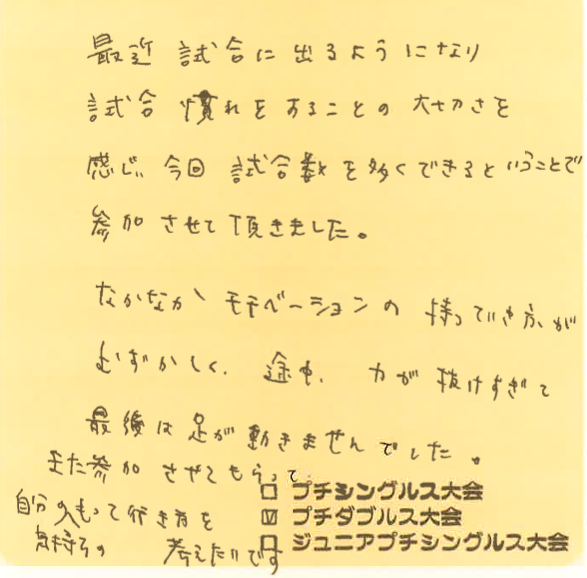 最近 試合に 出るように なり
試合 慣れを することの 大切さを
感じ、今回 試合数を多くできるということで
参加 させて 頂きました。
なかなか モチベーションの 持っていき方が
むずかしく、途中、力が 抜けすぎて
最後は 足が 動きませんでした。
また参加 させてもらって、
自分の もって行き方を
気持ちの 考えたいです
□ プチシングルス大会
☑ プチダブルス大会
□ ジュニアプチシングルス大会